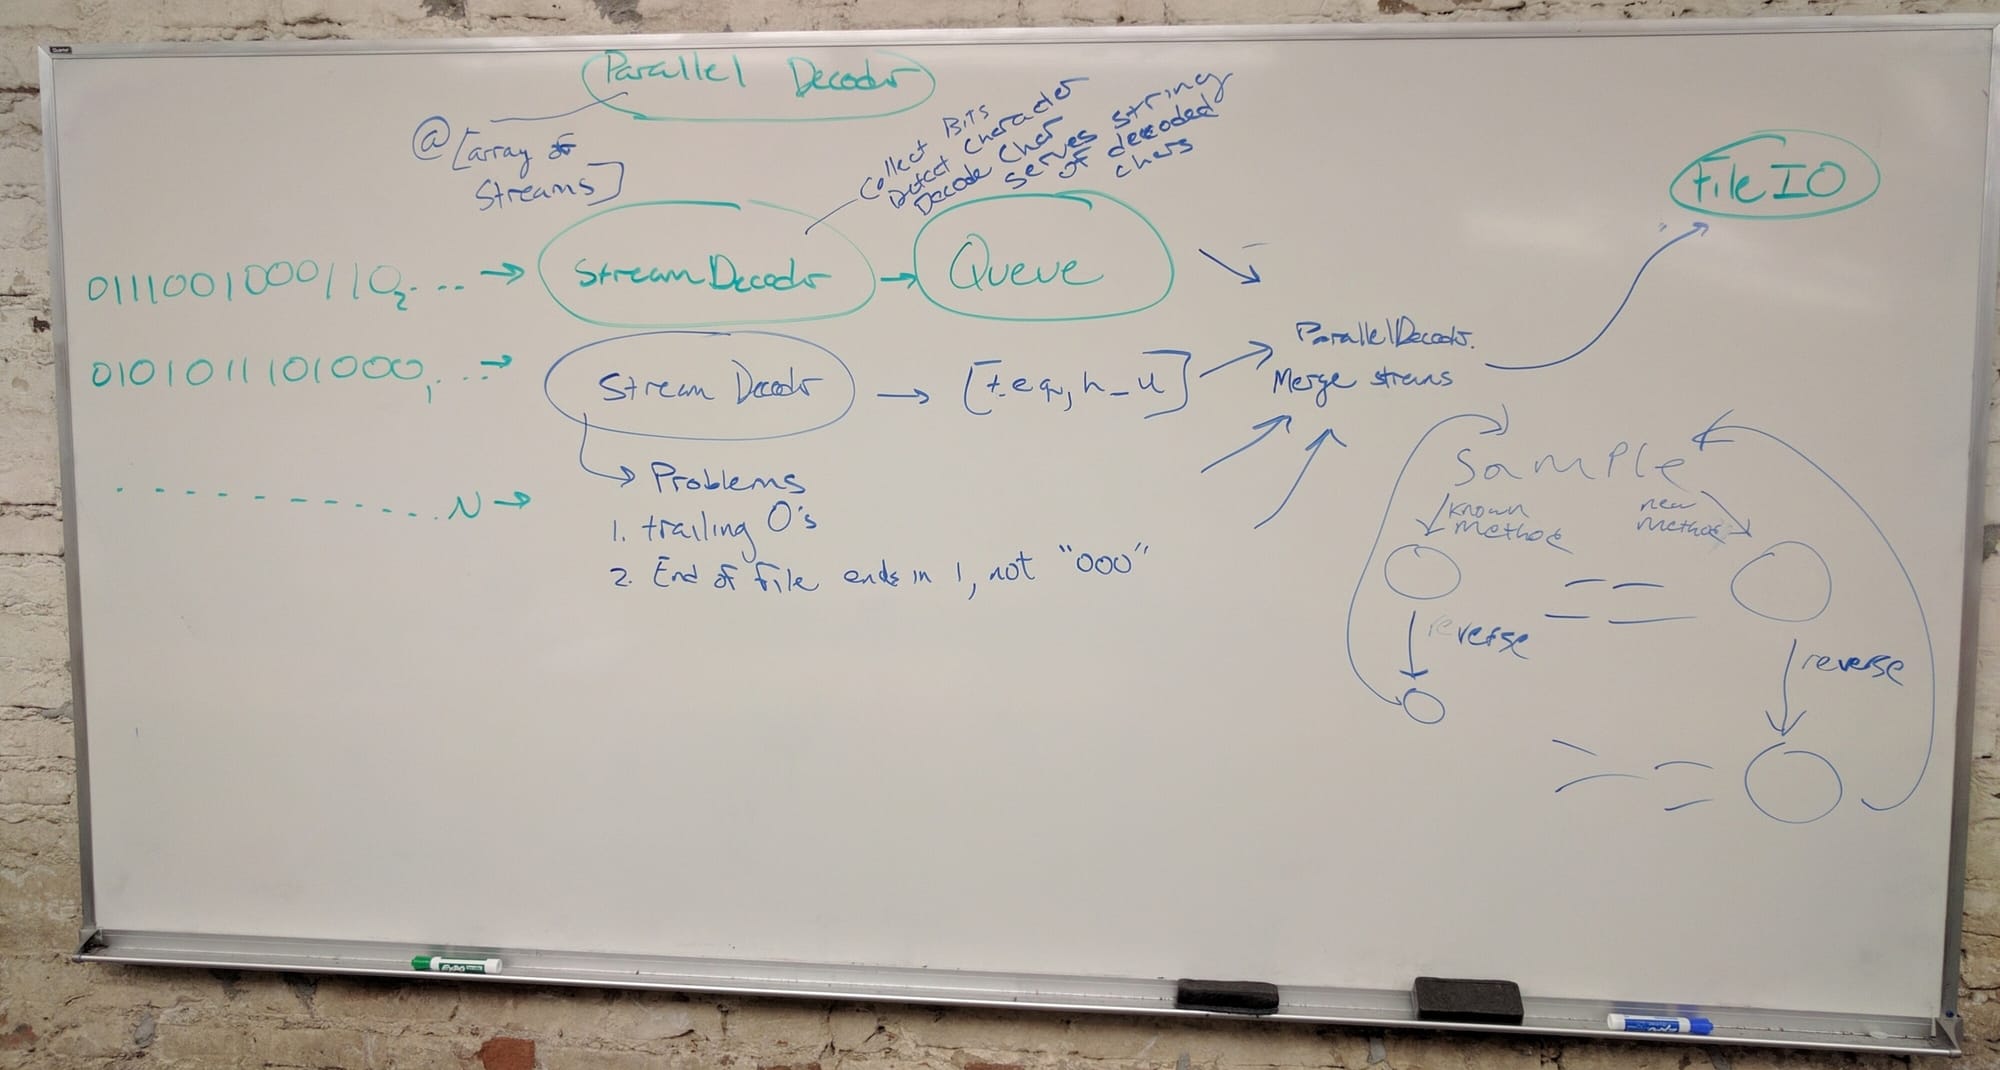 Parallel Decoder
@[array of
Streams]
Collect Bits
Detect Character
Decode Char
Serves string
of decoded
chars
File IO
0111001000110₂. ... →
StreamDecoder
→
Queue
0101011101000₁...→
Stream Decoder
→
[t.eq,h_u]
ParallelDecoder.
Merge streams
. - - - - - - - - ... N →
Problems
1. trailing 0's
2. End of File ends in 1, not "000"
Sample
known
method
new
method
reverse
reverse
EXPO